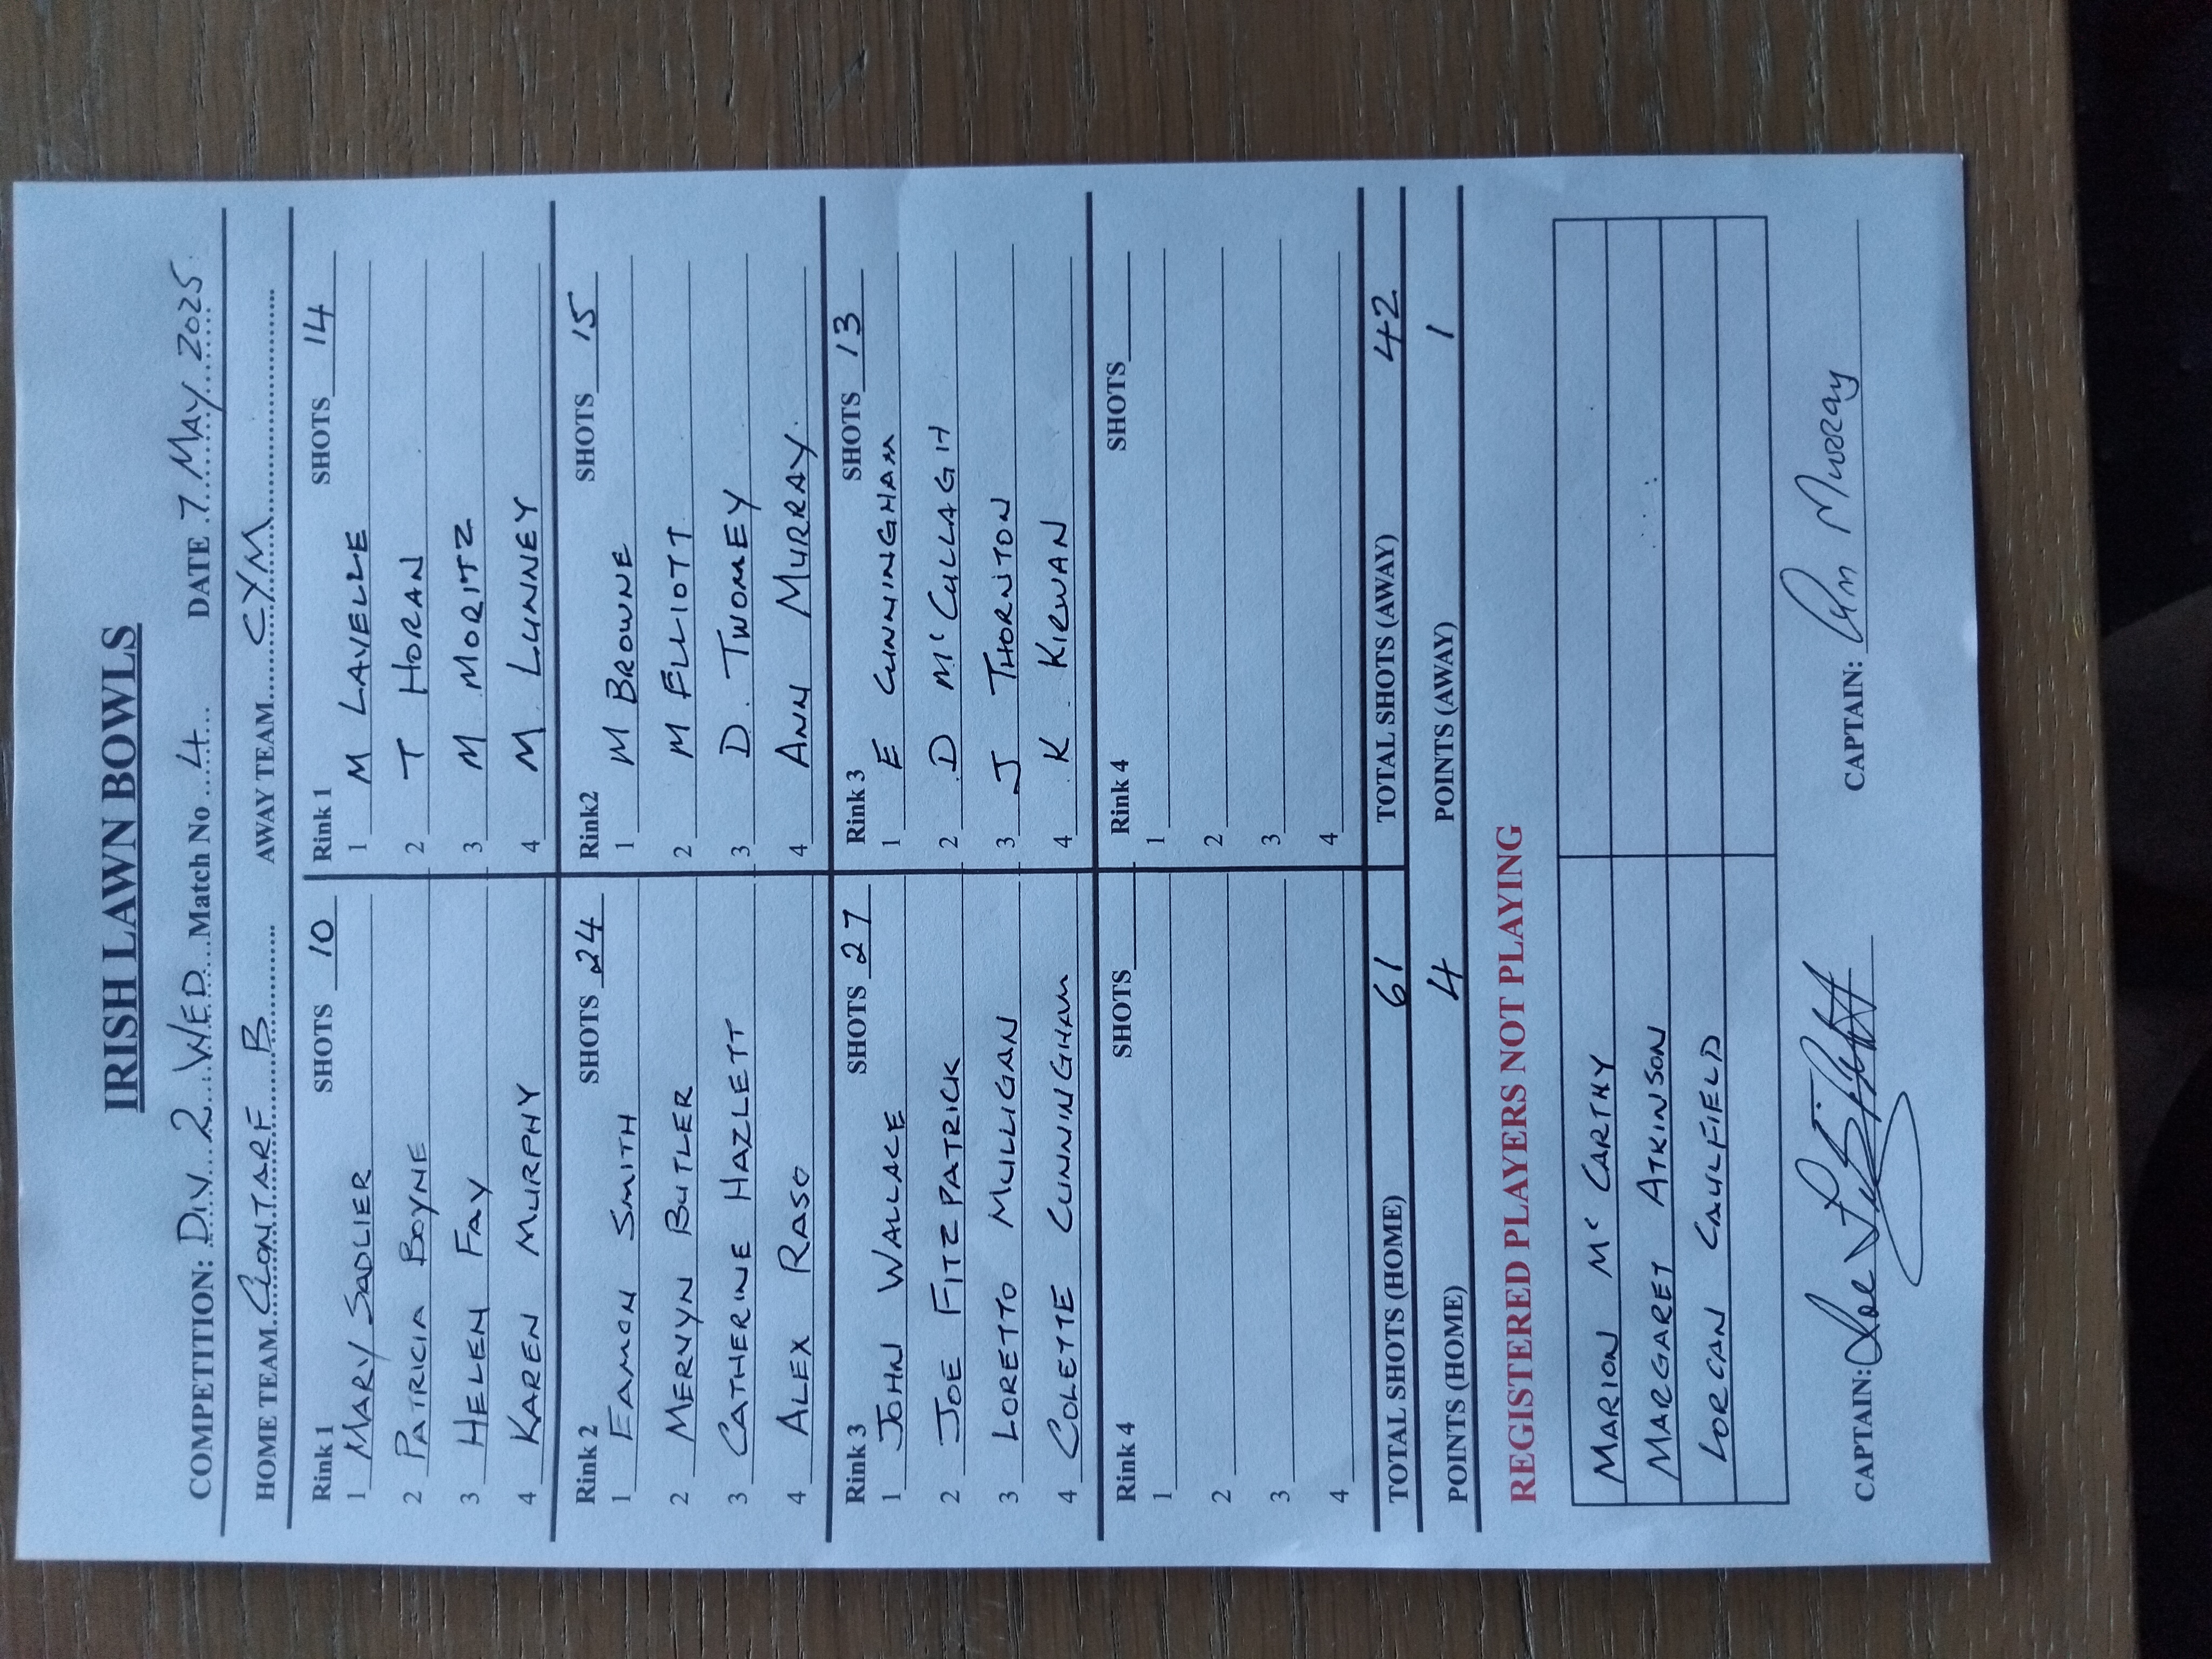 IRISH LAWN BOWLS
COMPETITION: DIV 2 WED Match No 4 DATE 7 MAY 2025
HOME TEAM CLONTARF B AWAY TEAM CYM
Rink 1 SHOTS 10 Rink 1 SHOTS 14
1 MARY SADLIER 1 M LAVELLE
2 PATRICIA BOYNE 2 T HORAN
3 HELEN FAY 3 M MORITZ
4 KAREN MURPHY 4 M LUNNEY
Rink 2 SHOTS 24 Rink2 SHOTS 15
1 EAMON SMITH 1 M BROWNE
2 MERVYN BUTLER 2 M ELLIOTT
3 CATHERINE HAZLETT 3 D. TWOMEY
4 ALEX RASO 4 ANN MURRAY
Rink 3 SHOTS 27 Rink 3 SHOTS 13
1 JOHN WALLACE 1 E CUNNINGHAM
2 JOE FITZPATRICK 2 D McCULLAGH
3 LORETTO MULLIGAN 3 J THORNTON
4 COLETTE CUNNINGHAM 4 K KIRWAN
Rink 4 SHOTS Rink 4 SHOTS
1 1
2 2
3 3
4 4
TOTAL SHOTS (HOME) 61 TOTAL SHOTS (AWAY) 42
POINTS (HOME) 4 POINTS (AWAY) 1
REGISTERED PLAYERS NOT PLAYING
MARION McCARTHY
MARGARET ATKINSON
LORCAN CAULFIELD
CAPTAIN: Joe CAPTAIN: Ann Murray